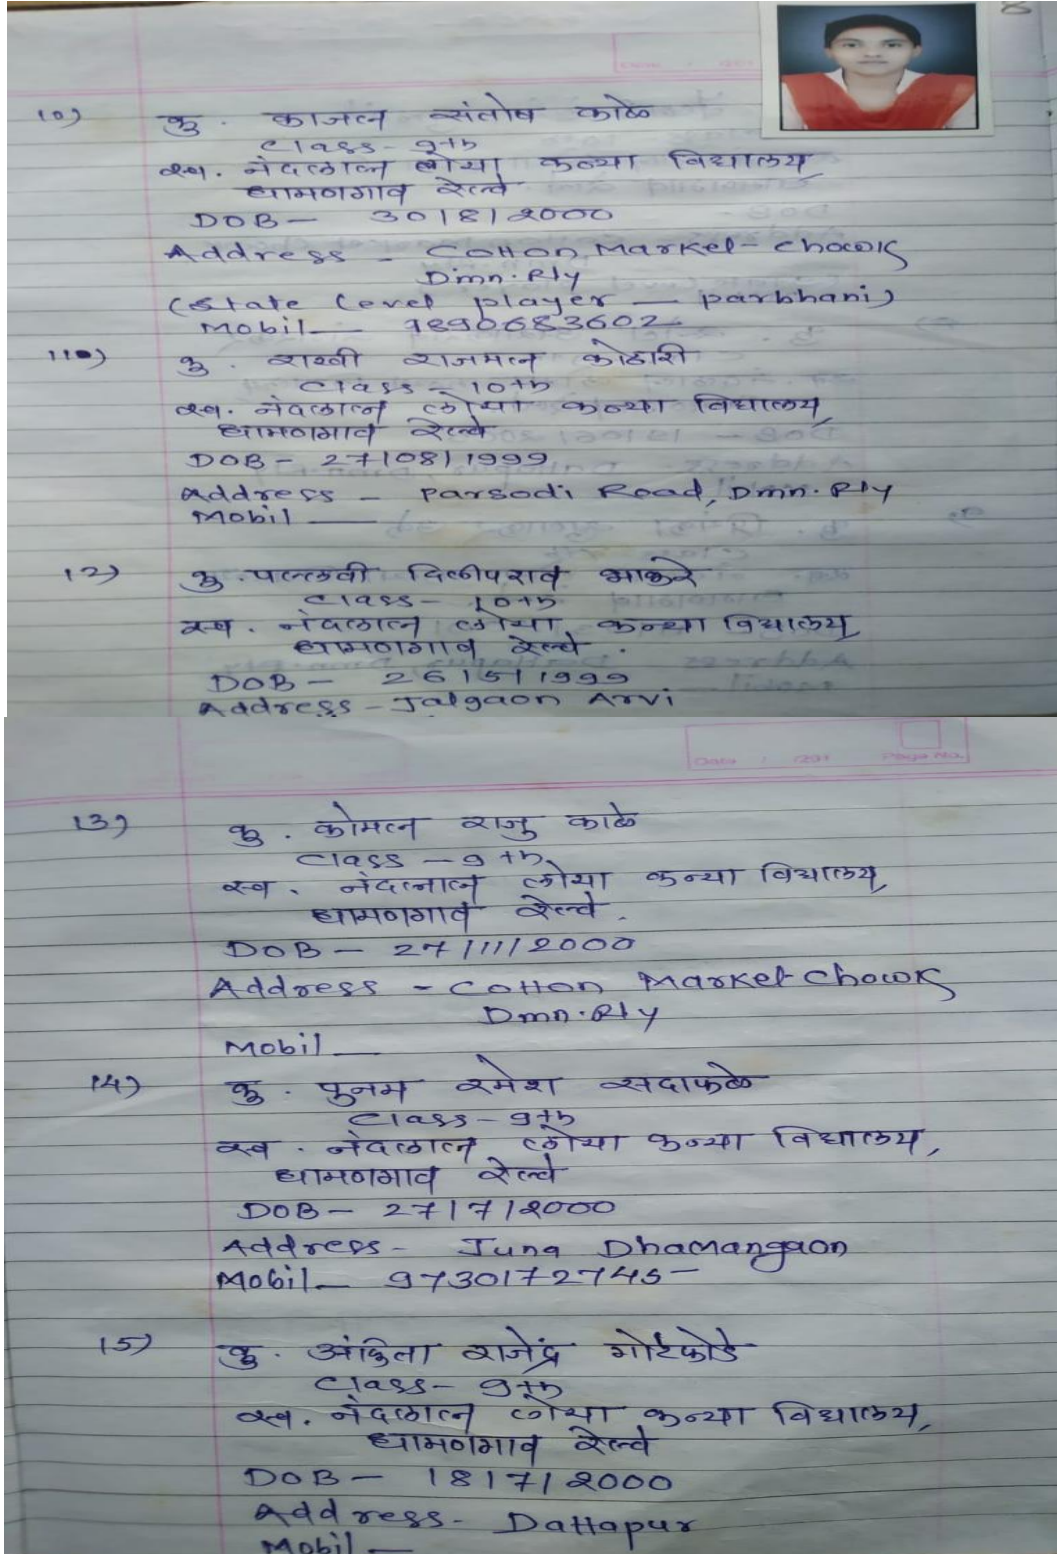 10) कु. काजल संतोष काळे
class - 9th
स्व. नंदलाल लोया कन्या विद्यालय,
धामणगाव रेल्वे
DOB - 30/8/2000
Address - Cotton Market-chowk
Dmn.Rly
(State level player - parbhani)
Mobil- 9890683602
11) कु. राखी राजमल कोठारी
class - 10th
स्व. नंदलाल लोया कन्या विद्यालय,
धामणगाव रेल्वे
DOB - 27/08/1999
Address - Parsodi Road, Dmn. Rly
Mobil -
12) कु. पल्लवी दिलीपराव भाकरे
class - 10th
स्व. नंदलाल लोया कन्या विद्यालय,
धामणगाव रेल्वे.
DOB - 26/5/1999
Address - Jalgaon Arvi
Date / 1201 Page No.
13) कु. कोमल राजु काळे
class - 9th
स्व. नंदलाल लोया कन्या विद्यालय,
धामणगाव रेल्वे.
DOB - 27/11/2000
Address - Cotton Market-Chowk
Dmn.Rly
Mobil -
14) कु. पुनम रमेश सदाफळे
class - 9th
स्व. नंदलाल लोया कन्या विद्यालय,
धामणगाव रेल्वे
DOB - 27/7/2000
Address - Juna Dhamangaon
Mobil - 9730172745
15) कु. अंकिता राजेंद्र गोर्टफोडे
class - 9th
स्व. नंदलाल लोया कन्या विद्यालय,
धामणगाव रेल्वे
DOB - 18/7/2000
Address - Dattapur
Mobil -